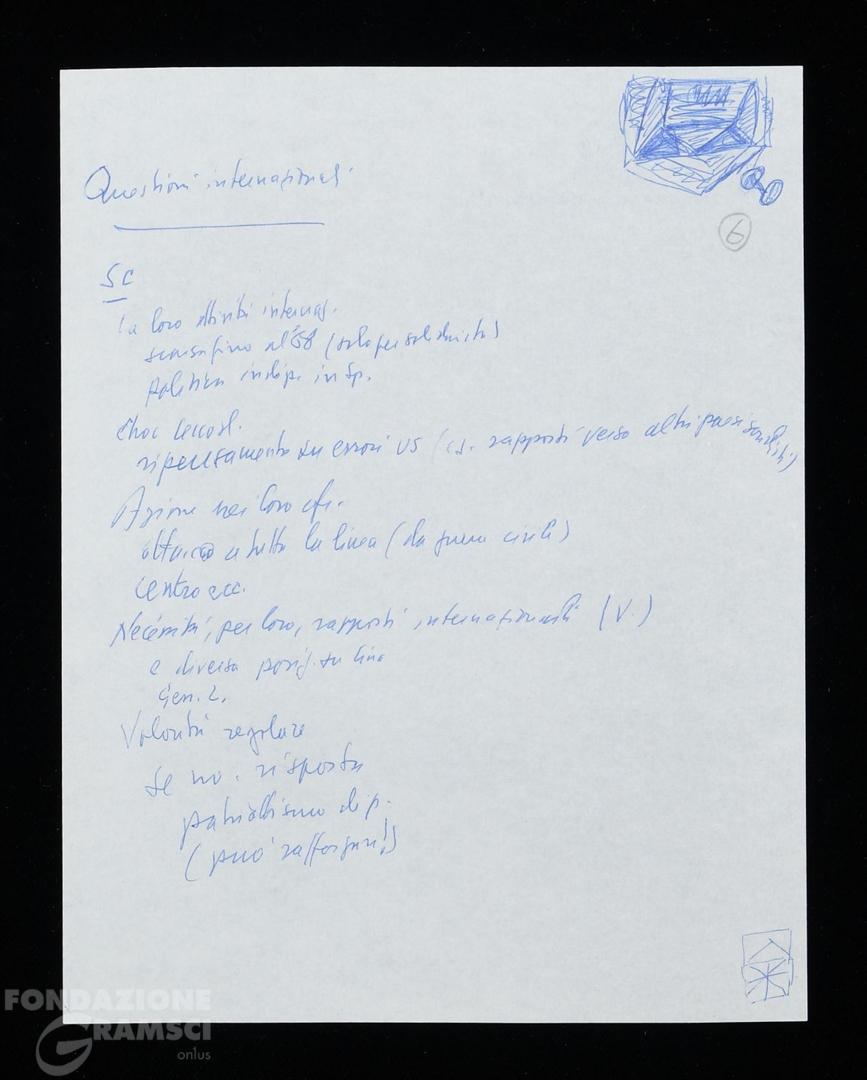 6
Questioni internazionali
SC
La loro attività internaz.
scarsa fino al '68 (solo per solidarietà)
politica indip. in Sp.
choc cecosl.
ripensamento su errori US ( rapporti verso altri paesi socialisti)
Azione nei loro cfr.
attacco a tutta la linea (da guerra civile)
centro ecc.
Necessità, per loro, rapporti internazionali (V.)
e diversa posiz. su Cina
Gen. 2.
Volontà regolare
se no. risposta
patriottismo di p.
(può rafforzare!)
FONDAZIONE
GRAMSCI
onlus